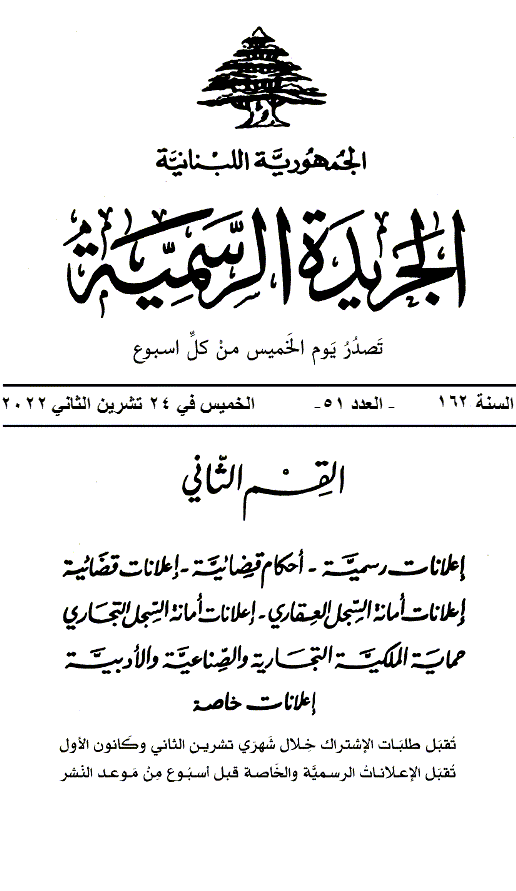 الجمهورية اللبنانية
الجريدة الرسمية
تَصدُرُ يَوم الخَميس منْ كلِّ اسبوع
السنة ١٦٢ - العدد ٥١ - الخميس في ٢٤ تشرين الثاني ٢٠٢٢
القِسْم الثّاني
إعلانات رسميَّة - أحكام قضائيَّة - إعلانات قضائية
إعلانات أمانة السِّجل العقاري - إعلانات أمانة السِّجل التجاري
حماية الملكيَّة التجارية والصِّناعيَّة والأدبيَّة
إعلانات خاصة
تُقبَل طلبَات الإشتراك خِلال شَهرَي تشرين الثاني وكَانون الأول
تُقبَل الإعلانات الرسميَّة والخَاصة قبل أسبُوع مِنْ مَوعد النَشر